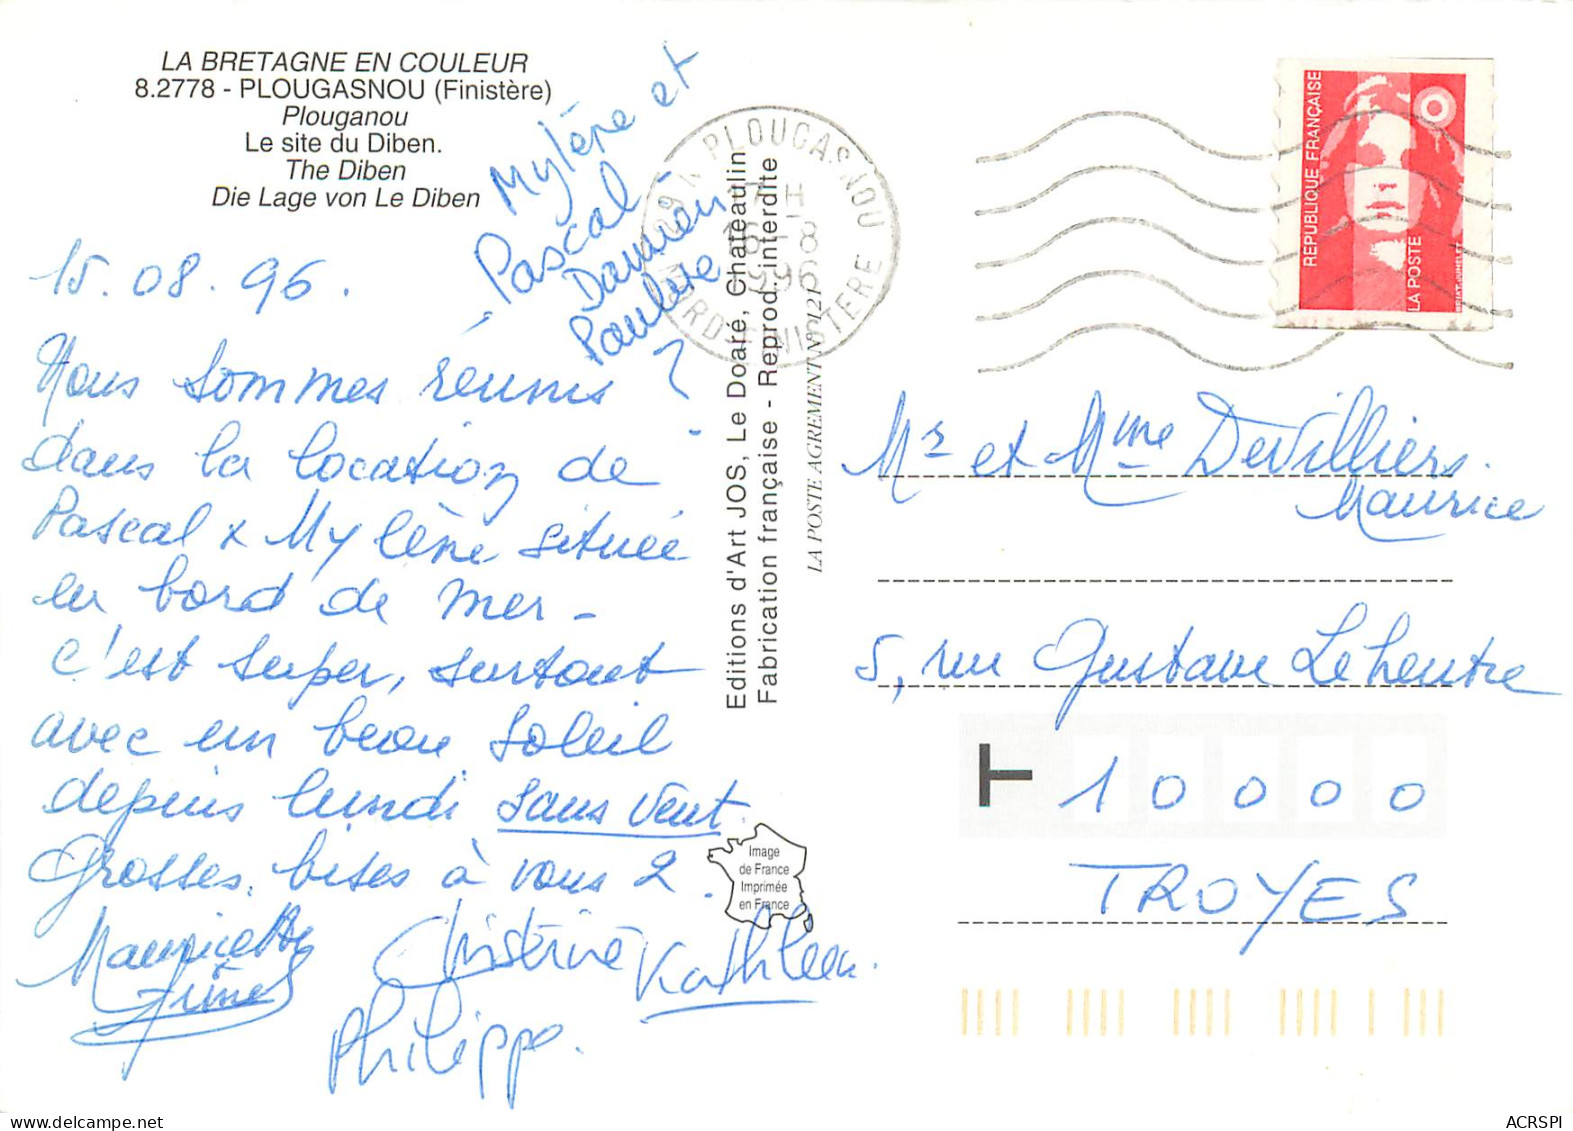 LA BRETAGNE EN COULEUR
8.2778 - PLOUGASNOU (Finistère)
Plouganou
Le site du Diben.
The Diben
Die Lage von Le Diben
Mylène et
Pascal
Damien
Pauline
15.08.96.
Nous sommes réunis
dans la location de
Pascal x Mylène située
en bord de mer -
c'est super, surtout
avec un beau soleil
depuis lundi sans vent.
Grosses bises à vous 2.
Mauricette
Christine
Kathleen.
Philippe.
Editions d'Art JOS, Le Doaré, Chateaulin
Fabrication française - Reprod. interdite
LA POSTE AGREMENT N° 121
Image
de France
Imprimée
en France
PLOUGASNOU
16-8
1996
NORD-FINISTERE
REPUBLIQUE FRANÇAISE
LA POSTE
Mr et Mme DeVilliers.
Maurice
5, rue Gustave Lehentre
10000
TROYES
ACRSPI